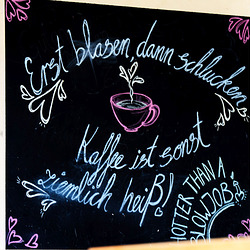 Erst blasen dann schlucken
Kaffee ist sonst
ziemlich heiß!
HOTTER THAN A
BLOWJOB